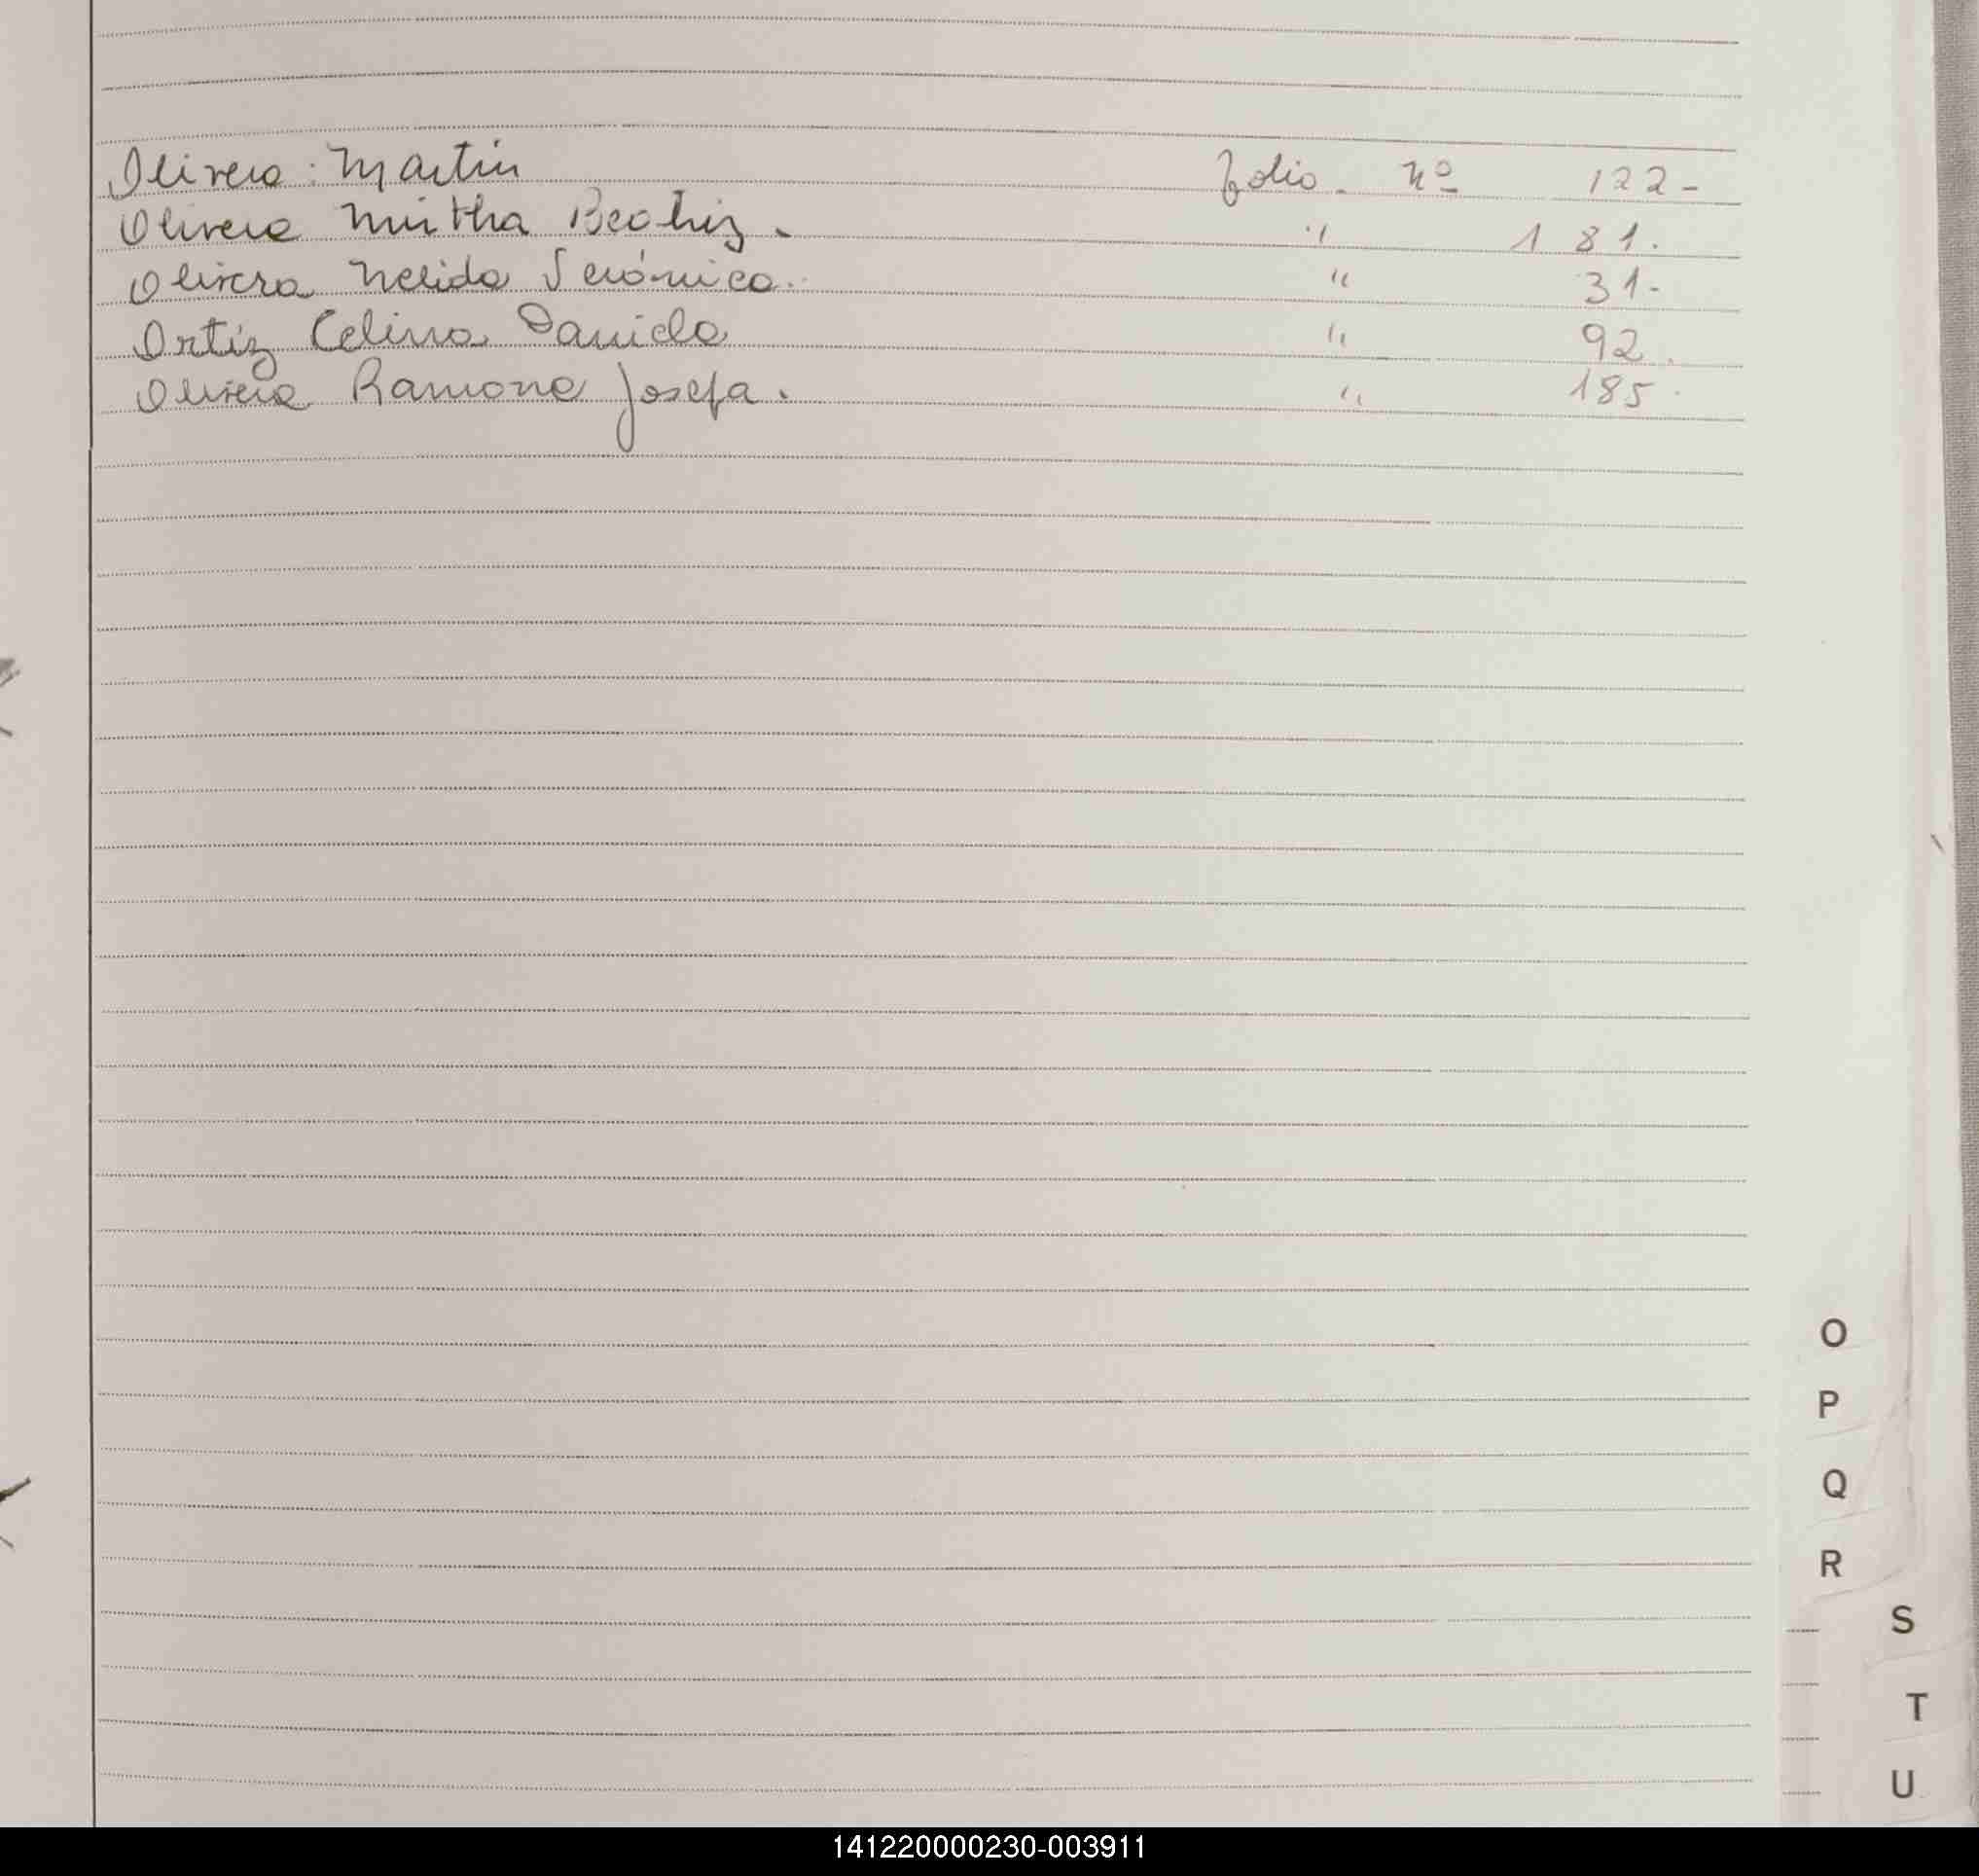 Olivera: Martin folio - Nº 122-
Olivera Mirtha Beatriz. " 181.
Olivera Nelida Verónica. " 31-
Ortiz Celina Daniela " 92.
Olivera Ramona Josefa. " 185.
O
P
Q
R
S
T
U
141220000230-003911